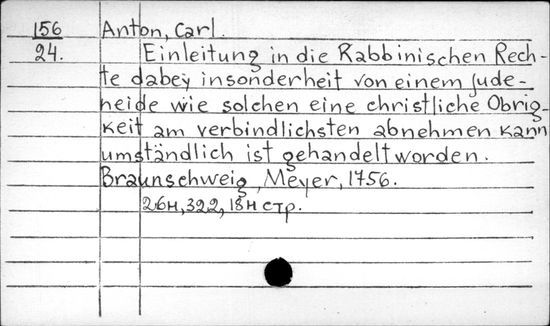 156 Anton, Carl.
24. Einleitung in die Rabbinischen Rech-
te dabey insonderheit von einem Jude-
neide wie solchen eine christliche Obrig-
keit am verbindlichsten abnehmen kann
umständlich ist gehandelt worden.
Braunschweig, Meyer, 1756.
26н, 322, 18н стр.